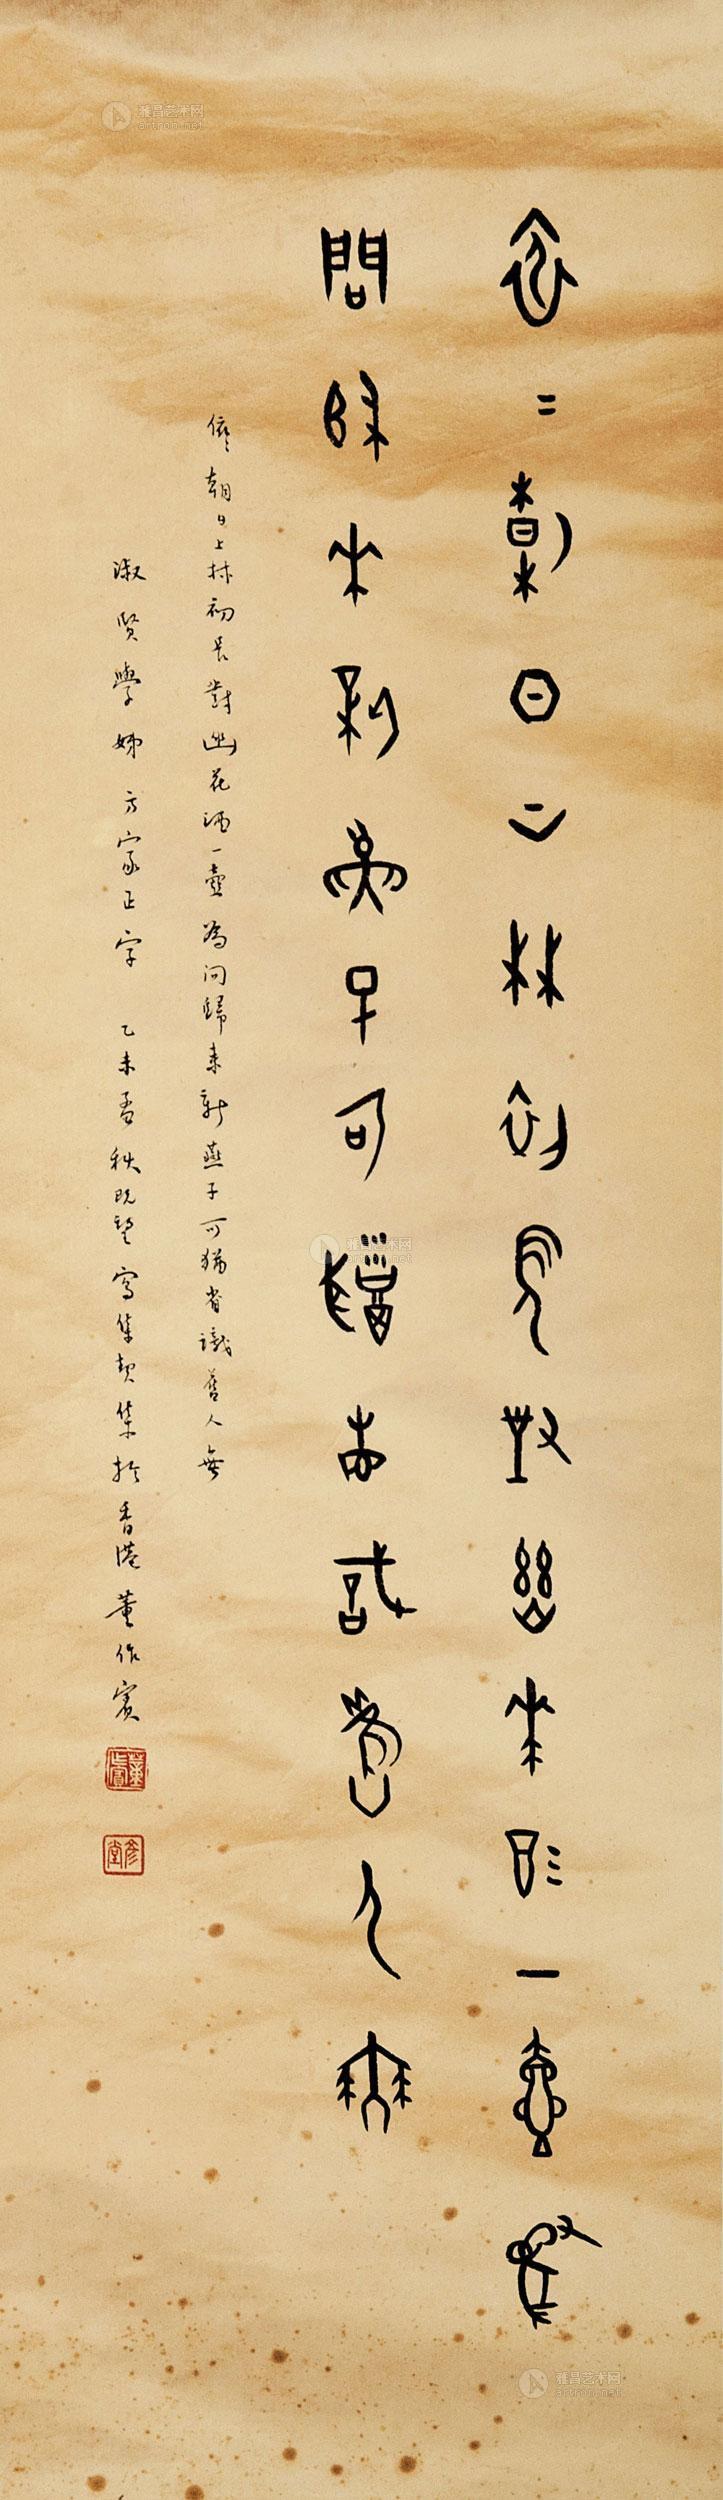 依〻朝日上林初見對幽花酒一壺為
問歸來新燕子可猶省識舊人無
依〻朝日上林初長對幽花酒一壺為問歸來新燕子可猶省識舊人無
淑賢學姊方家正字 乙未孟秋既望寫集契集於香港董作賓
董作賓
彥堂
雅昌艺术网
artron.net
雅昌艺术网
artron.net
雅昌艺术网
artron.net